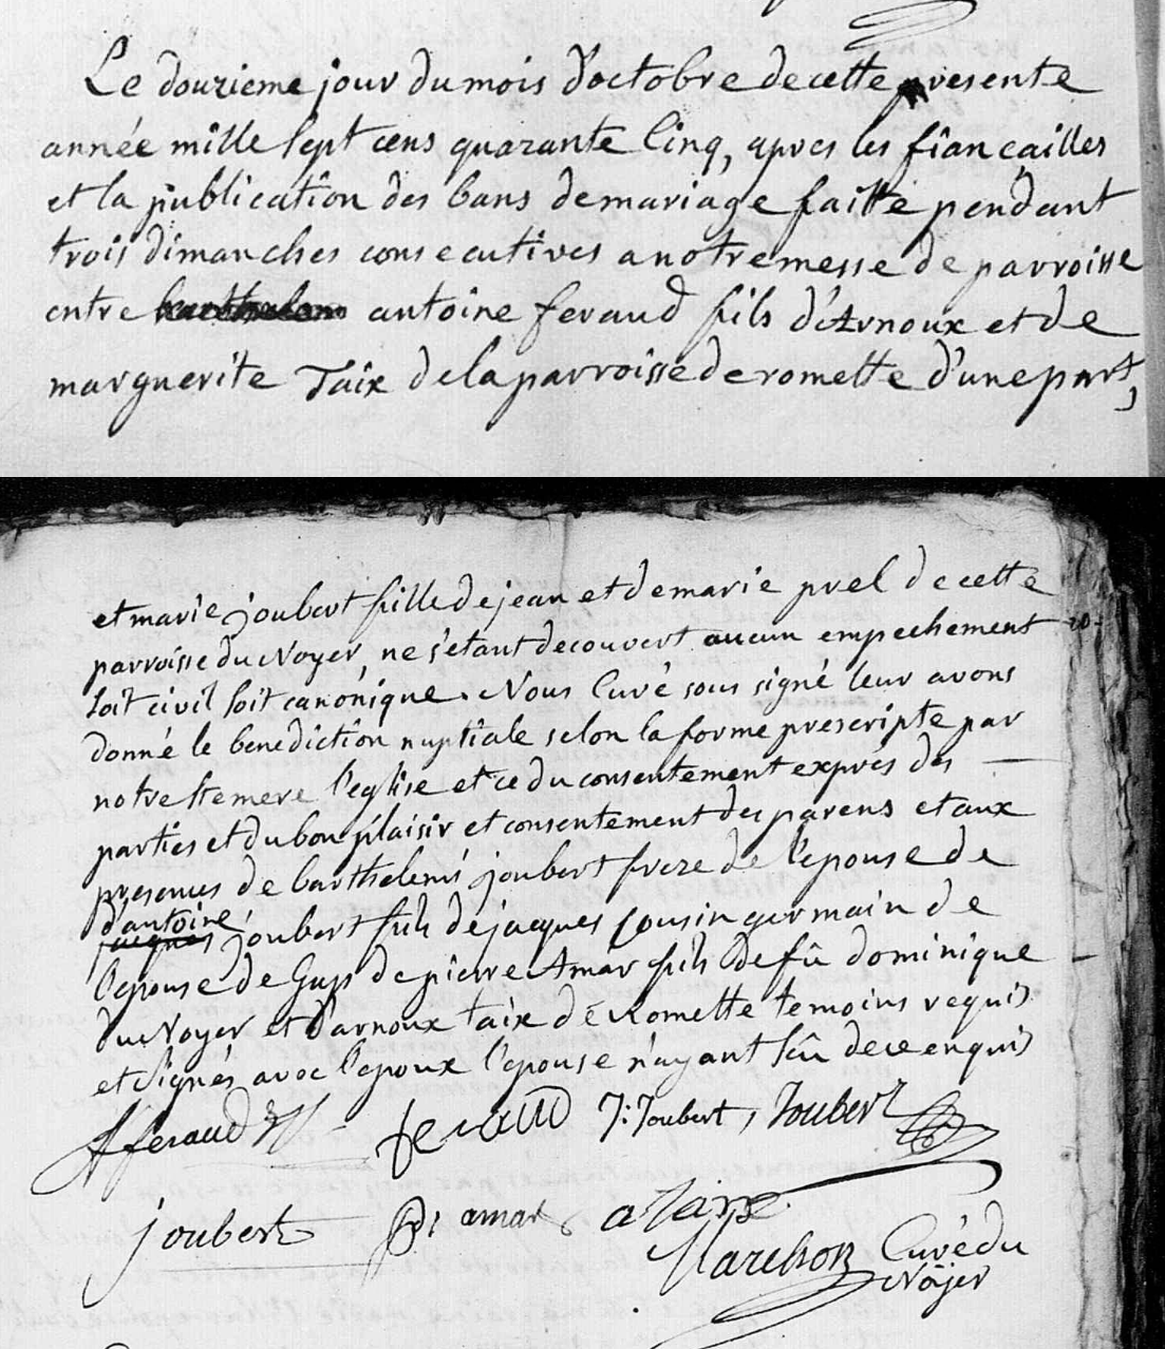 Le douzieme jour du mois d'octobre de cette presente
année mille sept cens quarante cinq, apres les fiancailles
et la publication des bans de mariage faitte pendant
trois dimanches consecutives a notre messe de parroisse
entre antoine feraud fils d'Arnoux et de
marguerite Taix de la parroisse de romette d'une part,
et marie joubert fille de jean et de marie prel de cette
parroisse du Noyer, ne s'etant decouvert aucun empechement
soit civil soit canonique. Nous Curé sous signé leur avons
donné le benediction nuptiale selon la forme prescripte par
notre ste mere l'eglise et ce du consentement exprés des
parties et du bon plaisir et consentement des parens et aux
presences de barthelemi joubert frere de l'epouse de
d'antoine
jacques joubert fils de jacques cousin germain de
l'epouse de Gap de pierre Amar fils de fû dominique
du Noyer et d'arnoux taix de Romette temoins requis
et signés avec l'epoux l'epouse n'ayant sçû de ce enquis
A feraud feraud J: Joubert, Joubert
joubert pi amar a Taix
Marchon Curé du
Noyer